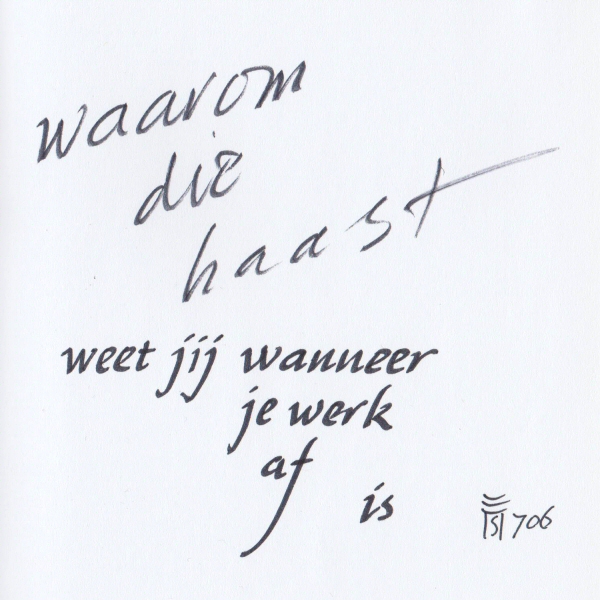 waarom
die
haast
weet jij wanneer
je werk
af
is
706